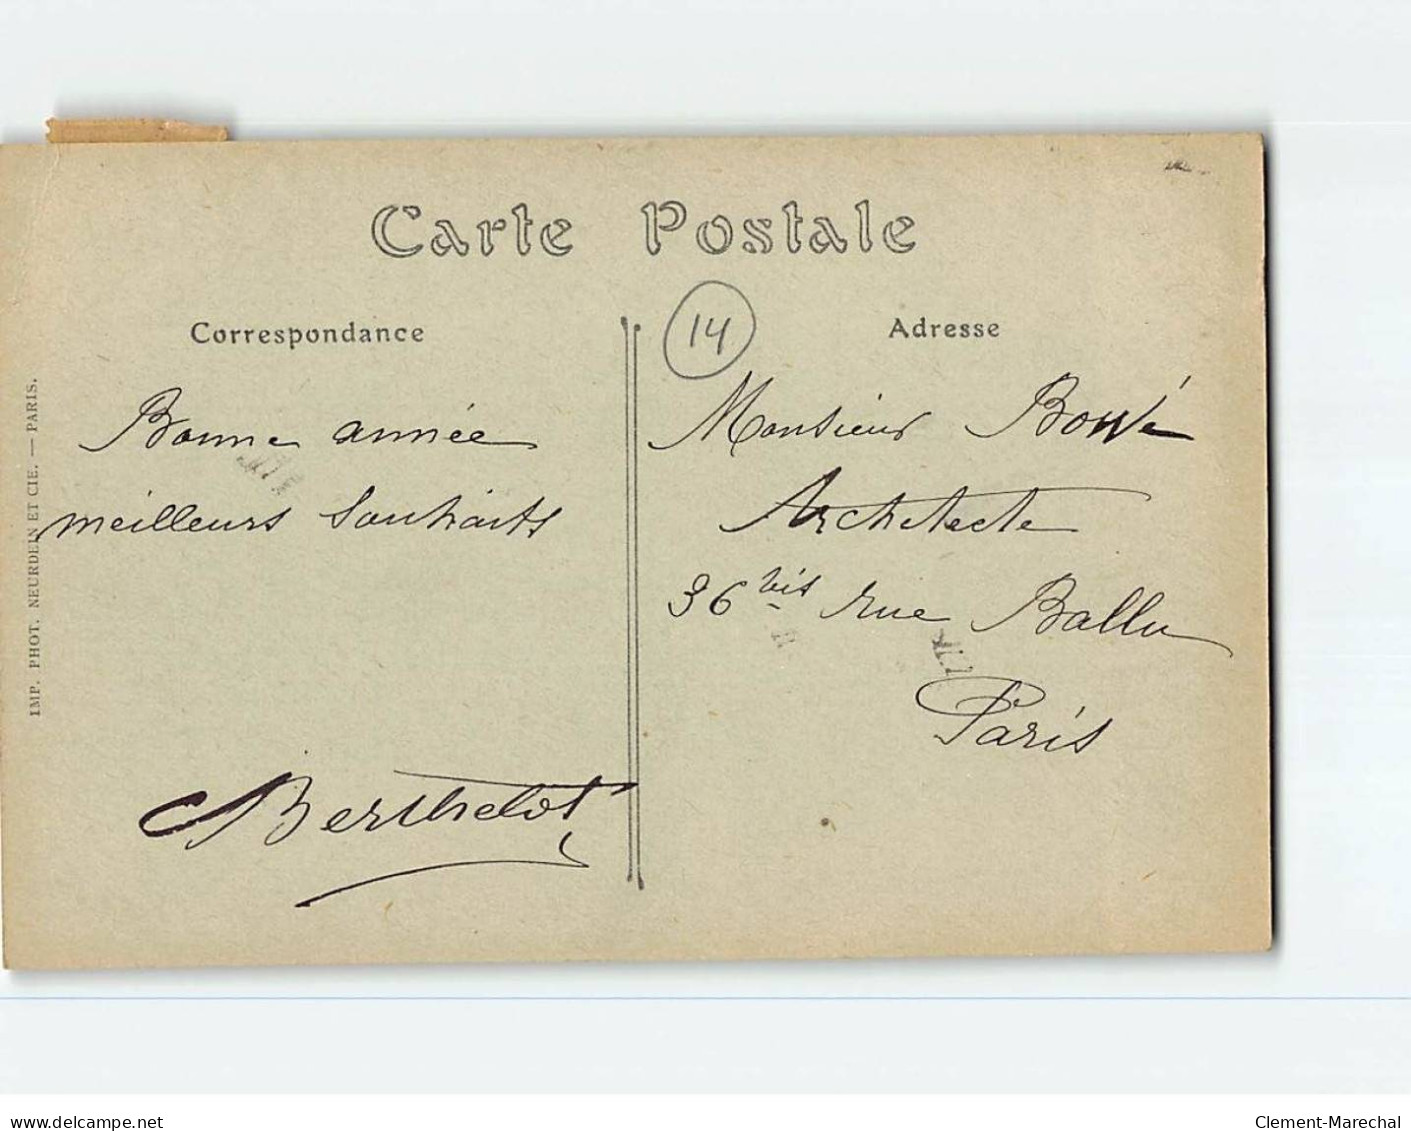 Carte Postale
Correspondance
Adresse
14
Bonne année
meilleurs souhaits
Berthelot
Monsieur
Architecte
36 bis rue Ballu
Paris
IMP. PHOT. NEURDEIN ET CIE. — PARIS.
delcampe.net
Clement-Marechal